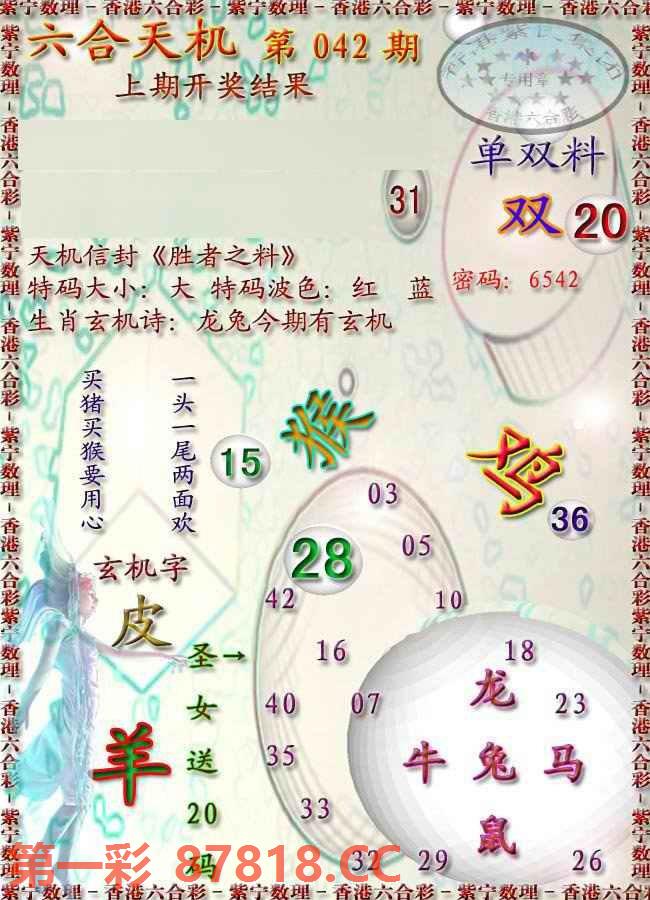 紫宁数理－香港六合彩－紫宁数理－香港六合彩－紫宁数理－香港六合彩
六合天机 第 042 期
上期开奖结果
专用章
香港六合彩
单双料
31
双 20
天机信封《胜者之料》
特码大小：大 特码波色：红 蓝
密码：6542
生肖玄机诗：龙兔今期有玄机
一头一尾两面欢
买猪买猴要用心
猴
15
鸡
36
03
28
05
玄机字
皮
42
10
圣女送20码
→
16
18
龙
40
07
23
羊
35
牛 兔 马
33
鼠
32
29
26
第一彩 87818.CC
紫宁数理－香港六合彩－紫宁数理－香港六合彩－紫宁数理－香港六合彩